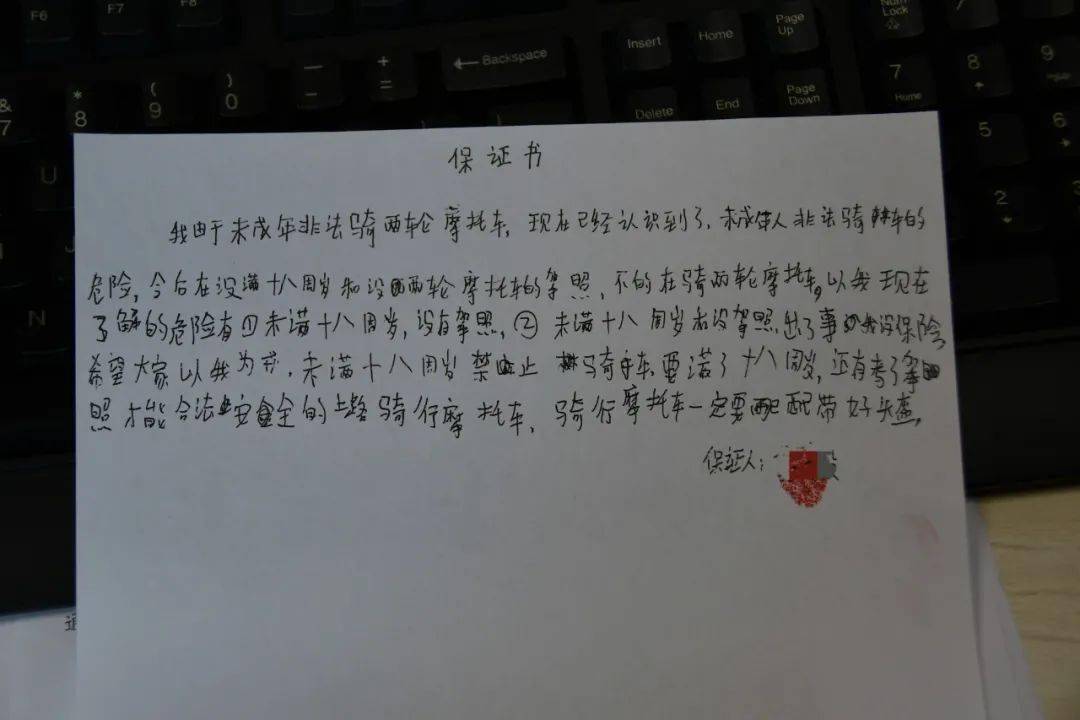 F6
F7
F8
&
7
*
8
(
9
)
0
—
-
+
=
←Backspace
Insert
Home
Page
Up
Num
Lock
7
Home
8
9
Delete
End
Page
Down
5
6
2
3
U
N
保证书
我由于未成年非法骑两轮摩托车，现在已经认识到了，未成年人非法骑车的
危险，今后在没满十八周岁和没两轮摩托车的驾照，不的在骑两轮摩托车。以我现在
了解的危险有①未满十八周岁，没有驾照，②未满十八周岁和没驾照出了事故没保险
希望大家以我为戒，未满十八周岁禁止骑车，要满了十八周岁，还有考了驾
照才能合法安全的上路骑行摩托车，骑行摩托车一定要配带好头盔。
保证人：